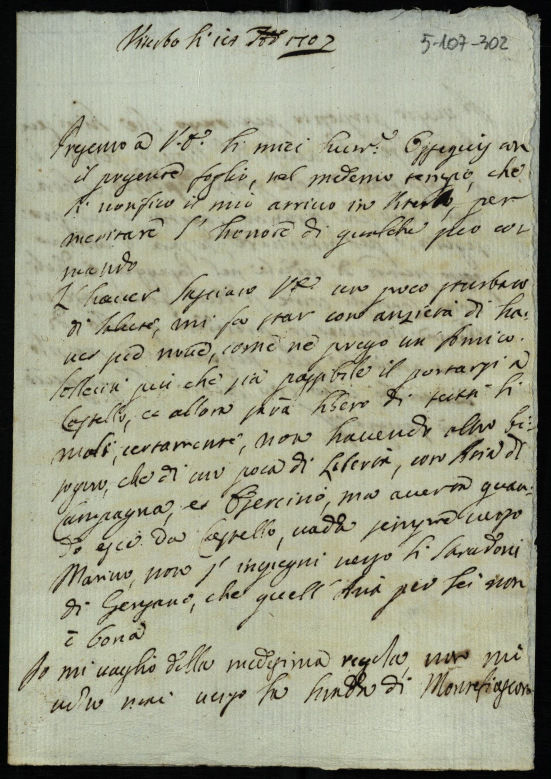 Viterbo li 1707
5-107-302
Presento a V.S. li miei Osseguij con
il presente foglio, nel medemo tempo, che
li notifico il mio arrivo in Viterbo, per
meritare l'honore di qualche suo co-
mando
L'haver lasciato V.S. un poco sturbato
di salute, mi fa star con anzietà di ha-
ver sue nove, come ne prego un
solleciti più che sia possibile il portarsi a
Castello, et allora sarà libero di tutti li
mali, certamente, non havendo altro bi-
sogno, che di un poca di Libertà, con Aria di
Campagna, et Esercitio, ma averta quan-
do esce da Castello, vada sempre verso
Marino, non s'ingegni verso li
di Genzano, che quell'Aria per lei non
è bona
Io mi vaglio della medesima regola, non mi
verso la di Montefiascone